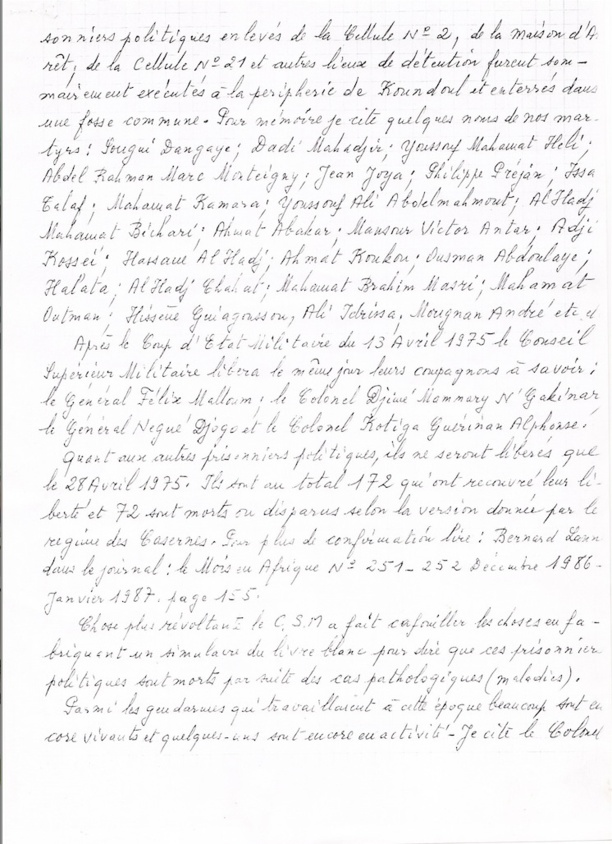 sonniers politiques enlevés de la Cellule Nº 2, de la Maison d'A-
rêt, de la Cellule Nº 21 et autres lieux de détention furent som-
mairement exécutés à la peripherie de Koundoul et enterrés dans
une fosse commune. Pour mémoire je cite quelques noms de nos mar-
tyrs : Gougué Dangaye ; Dadi Mahadjir ; Youssouf Mahamat Heli ;
Abdel Rahman Marc Monteigny ; Jean Joya ; Philippe Préjan ; Issa
Mahamat Kamara ; Youssouf Ali Abdelmahmout ; Al Hadj
Mahamat Béchari ; Ahmat Abakar ; Mansour Victor Antar ; Adji
Kosseï ; Hassane Al Hadj ; Ahmat Koukou ; Ousman Abdoulaye ;
Halata ; Al Hadj Chahat ; Mahamat Brahim Masri ; Mahamat
Outman ; Hissenë Guiagoussou, Ali Idrissa, Mougnan André etc.
Après le Coup d'Etat Militaire du 13 Avril 1975 le Conseil
Supérieur Militaire libera le même jour leurs compagnons à savoir :
le Général Félix Malloum ; le Colonel Djimé Mommary N'Gakinar
le Général Negué Djogo et le Colonel Kotiga Guérinan Alphonse.
Quant aux autres prisonniers politiques, ils ne seront libérés que
le 28 Avril 1975. Ils sont au total 172 qui ont recouvré leur li-
berté et 72 sont morts ou disparus selon la version donnée par le
regime des Casernes. Pour plus de confirmation lire : Bernard Lann
dans le journal : le Mois en Afrique Nº 251-252 Décembre 1986-
Janvier 1987. page 155.
Chose plus révoltant le C.S.M a fait cafouiller les choses en fa-
briquant un simulaire du livre blanc pour dire que ces prisonnier
politiques sont morts par suite des cas pathologiques (maladies).
Parmi les gendarmes qui travaillaient à cette époque beaucoup sont en
core vivants et quelques-uns sont encore en activité - Je cite le Colonel